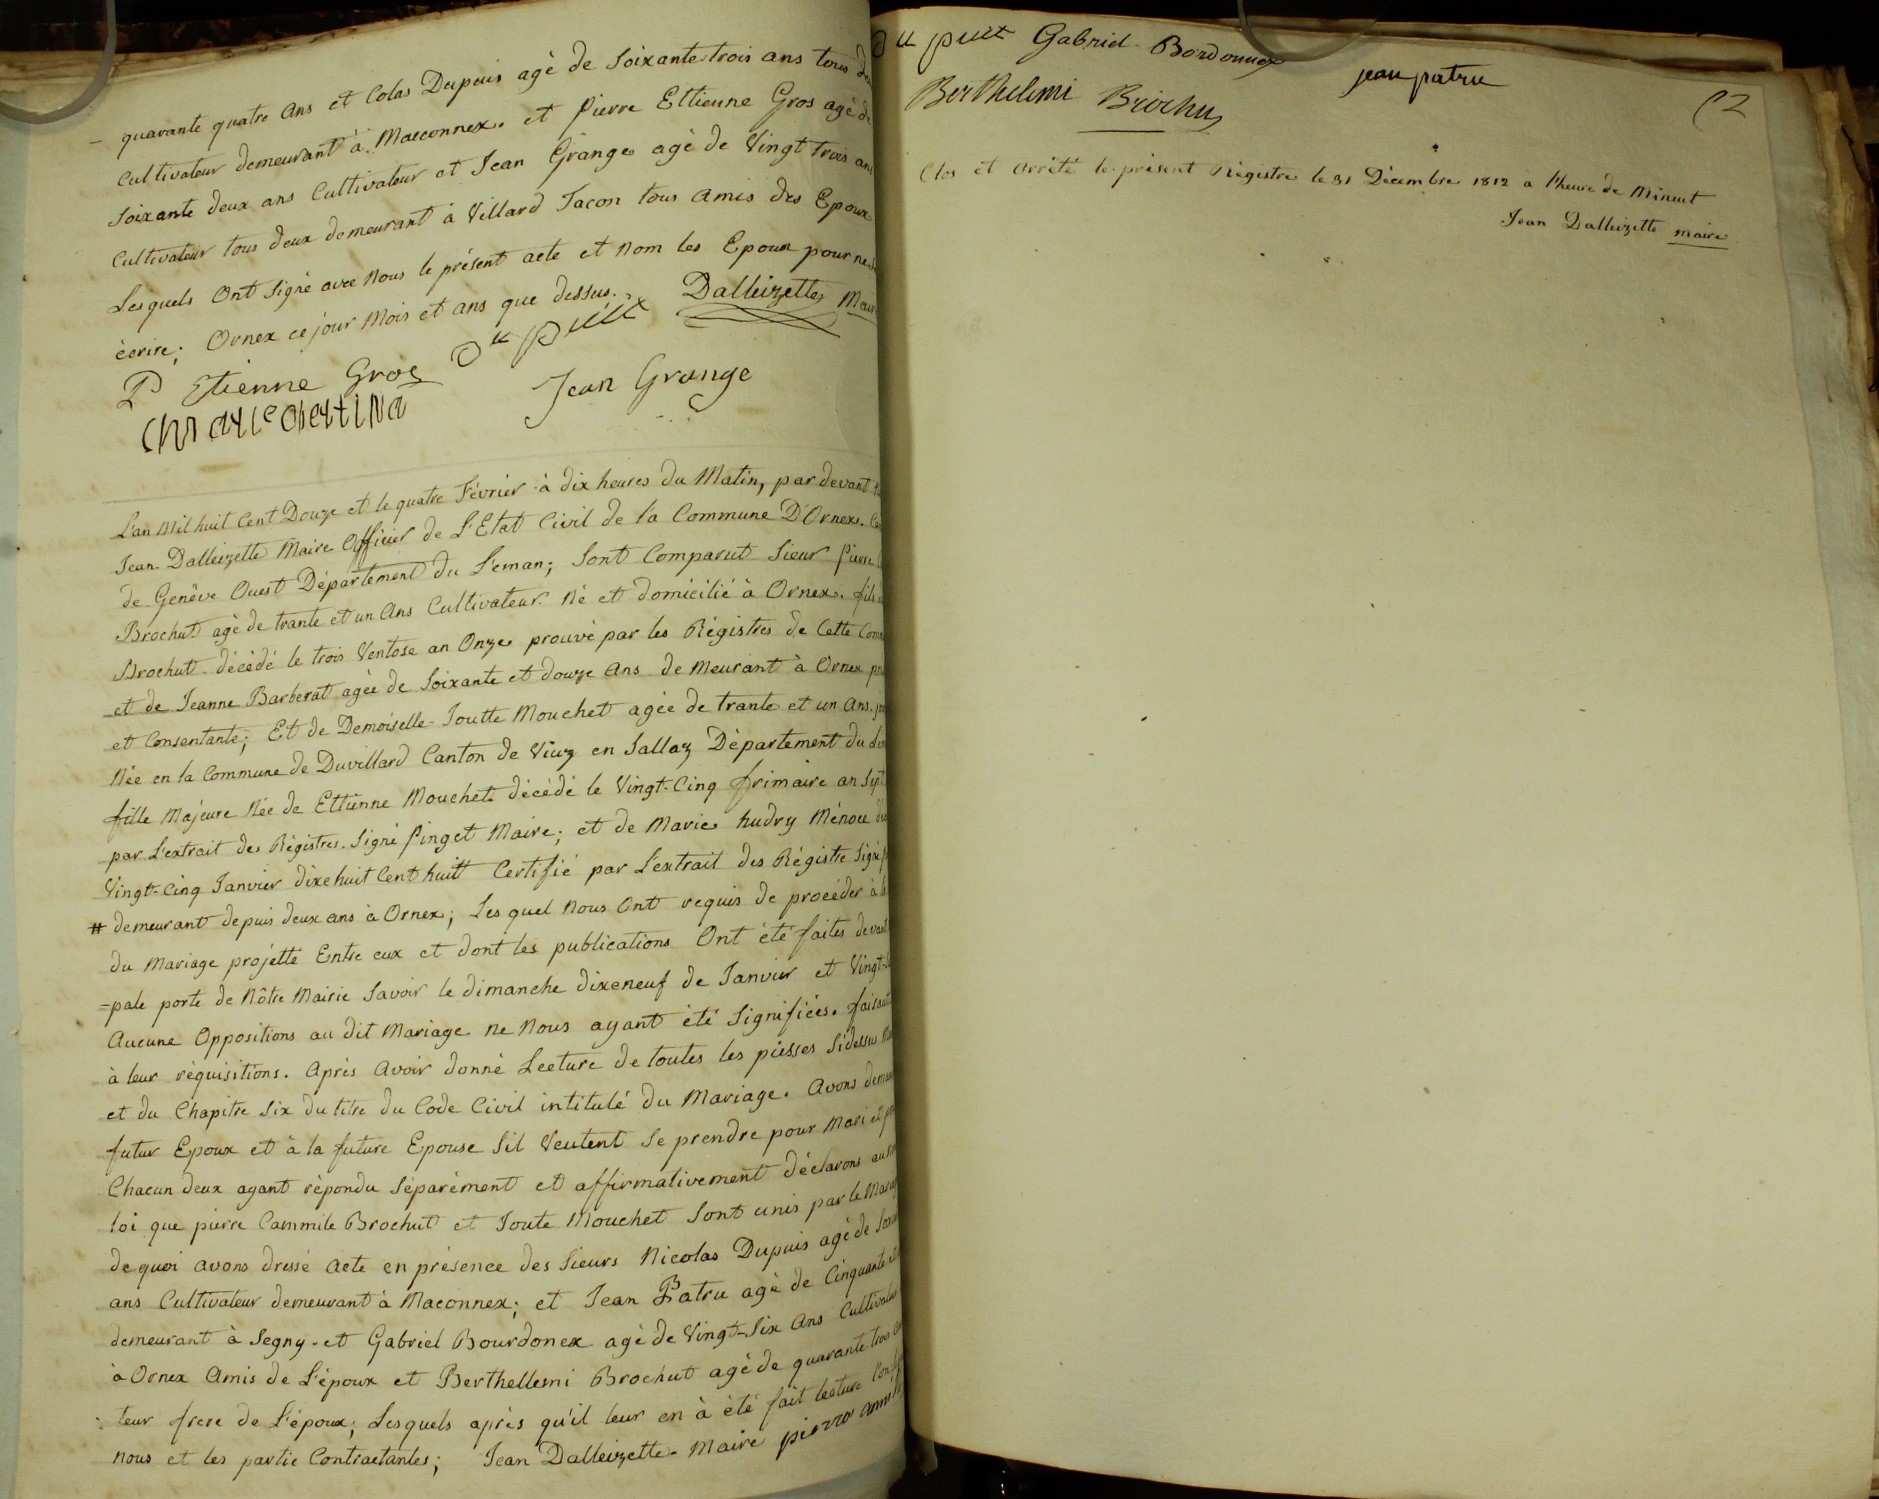 - quarante quatre ans et Colas Dupuis agé de Soixante trois ans tous
Cultivateur demeurant à Maconnex. et Pierre Ettienne Gros agé de
Soixante deux ans Cultivateur et Jean Grange agé de Vingt trois ans
Cultivateur tous deux demeurant à Villard Tacon tous amis des Epoux
Lesquels Ont Signé avec Nous le présent acte et Nom les Epoux pour ne
écrire; Ornex ce jour Mois et ans que dessus. Dalleizette Maire
P Etienne Gros Du puit
Jean Grange
L'an Mil huit Cent Douze et le quatre Février à dix heures du Matin, par devant
Jean Dalleizette Maire Officier de L'Etat Civil de la Commune D'Ornex.
de Genêve Ouest Département du Léman; Sont Comparut Sieur Pierre
Brochut agé de trante et un Ans Cultivateur. Né et domicilié à Ornex. fils
Brochut décédé le trois Ventose an Onze prouvé par les Régistres de Cette
et de Jeanne Barberat agée de Soixante et douze ans demeurant à Ornex
et Consentante; Et de Demoiselle Joutte Mouchet agée de trante et un ans.
Née en la Commune de Duvillard Canton de Viuz en Sallaz Département du
fille Majeure Née de Ettienne Mouchet décédé le Vingt-Cinq frimaire an Sept
par L'extrait des Régistres. Signé Pinget Maire; et de Marie hudry Ménou
Vingt-Cinq Janvier dixehuit Cent huitt Certifié par L'extrait des Régistre Signé
# demeurant depuis deux ans à Ornex; Les quel Nous Ont requis de procéder à
du Mariage projetté Entre eux et dont les publications Ont été faites devant
=pale porte de Nôtre Mairie Savoir le dimanche dixeneuf de Janvier et Vingt-
Aucune Oppositions au dit Mariage ne Nous ayant été Signifiées. faisant
à leur réquisitions. Après Avoir donné Lecture de toutes les piesses Sidessus
et du Chapitre Six du titre du Code Civil intitulé du Mariage. Avons
futur Epoux et à la future Epouse Sil Veutent Se prendre pour Mari et
Chacun deux ayant répondu Séparément et affirmativement déclarons au
loi que pierre Cammile Brochut et Joute Mouchet Sont unis par le
de quoi avons dressé acte en présence des Sieurs Nicolas Dupuis agé de
ans Cultivateur demeurant à Maconnex; et Jean Patru agé de Cinquante
demeurant à Segny. et Gabriel Bourdonex agé de Vingt-Six ans Cultivateur
à Ornex Amis de L'époux et Berthellemi Brochut agé de quarante trois
teur frere de L'époux; Lesquels après qu'il leur en à été fait lecture
nous et les partie Contractantes; Jean Dalleizette Maire pierre
du puit Gabriel Bordonnex
jean patru
Berthelemi Brochu
Clos et Arrêté le présent Régistre le 31 Décembre 1812 a l'heure de Minuit
Jean Dalleizette Maire